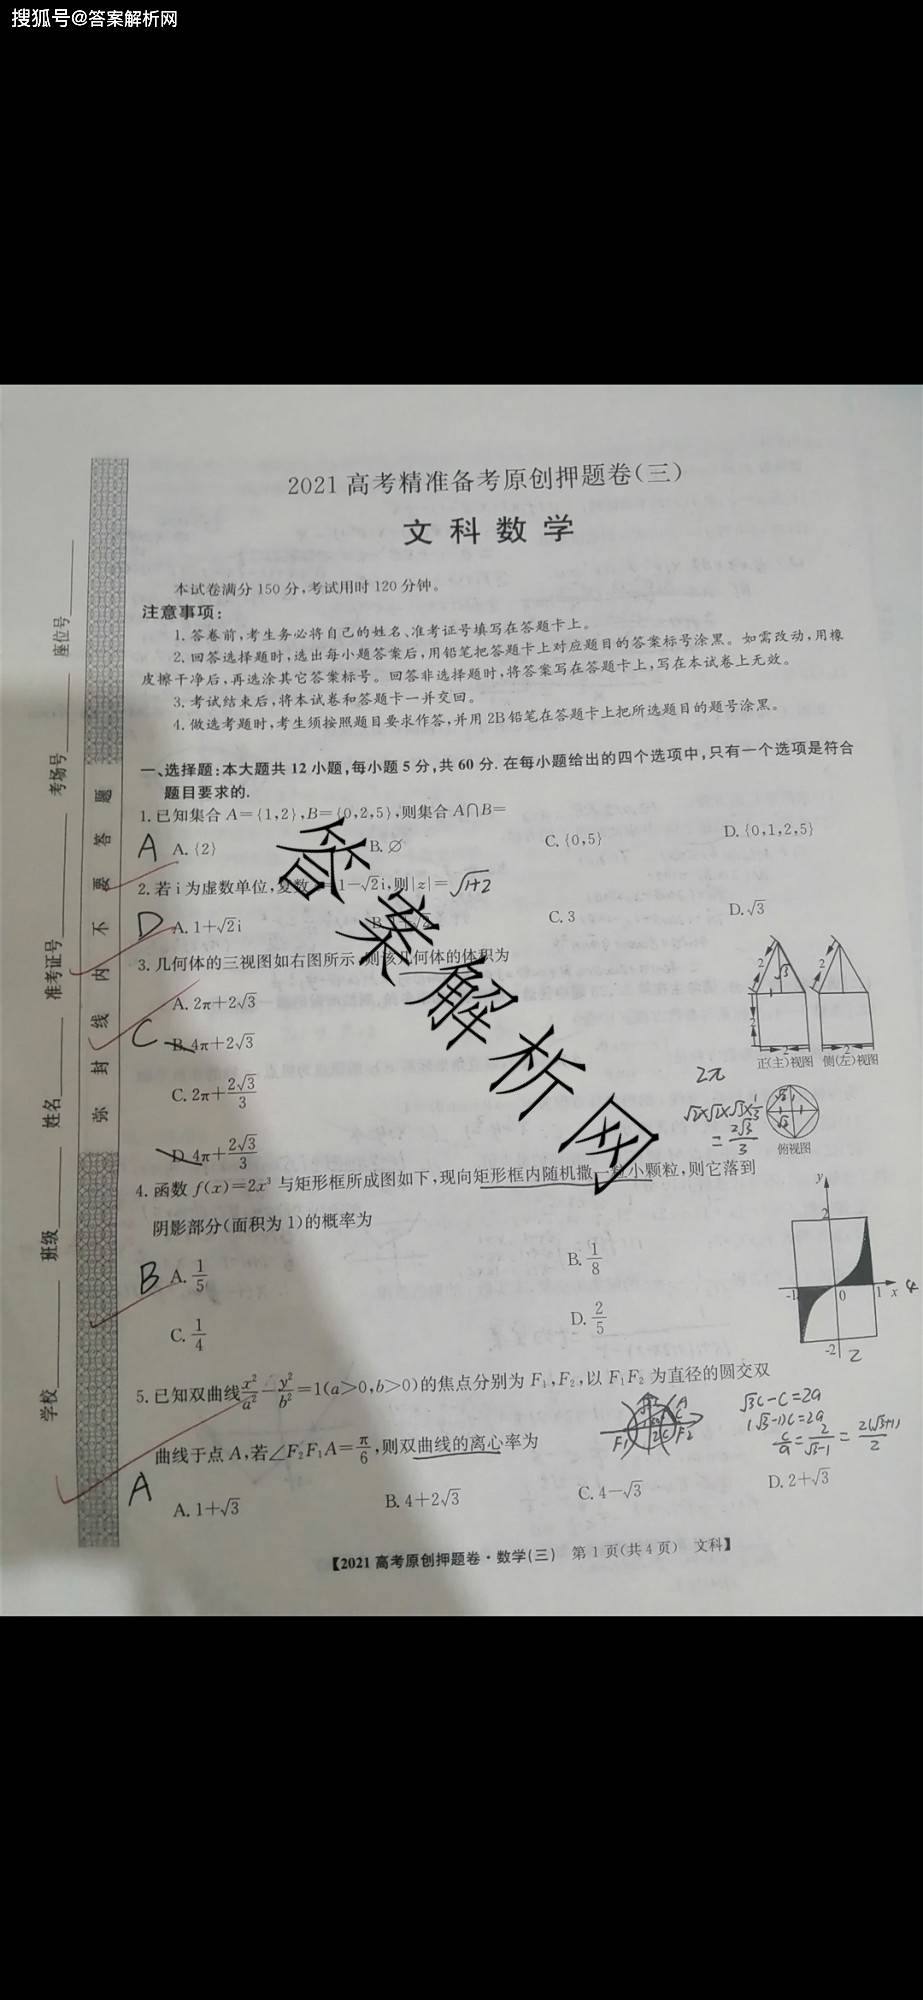 搜狐号@答案解析网
2021高考精准备考原创押题卷(三)
文科数学
本试卷满分150分,考试用时120分钟。
注意事项:
1.答卷前,考生务必将自己的姓名、准考证号填写在答题卡上。
2.回答选择题时,选出每小题答案后,用铅笔把答题卡上对应题目的答案标号涂黑。如需改动,用橡
皮擦干净后,再选涂其它答案标号。回答非选择题时,将答案写在答题卡上,写在本试卷上无效。
3.考试结束后,将本试卷和答题卡一并交回。
4.做选考题时,考生须按照题目要求作答,并用2B铅笔在答题卡上把所选题目的题号涂黑。
一、选择题:本大题共12小题,每小题5分,共60分.在每小题给出的四个选项中,只有一个选项是符合
题目要求的.
1.已知集合A={1,2},B={0,2,5},则集合A∩B=
A A.{2} B.∅ C.{0,5} D.{0,1,2,5}
2.若i为虚数单位,复数 1-√2i,则|z|= √1+2
D A.1+√2i C.3 D.√3
3.几何体的三视图如右图所示,则该几何体的体积为
A.2π+2√3
C B.4π+2√3
C.2π+2√3/3
D.4π+2√3/3
2 √3 2
2 2 2
正(主)视图 侧(左)视图
2π
√2×√2×√3×1/3
=2√3/3
俯视图
4.函数f(x)=2x³与矩形框所成图如下,现向矩形框内随机撒一粒小颗粒,则它落到
阴影部分(面积为1)的概率为
B A.1/5 B.1/8
C.1/4 D.2/5
y
2
-1 0 1 x 4
-2 2
5.已知双曲线x²/a²-y²/b²=1(a>0,b>0)的焦点分别为F₁,F₂,以F₁F₂为直径的圆交双
曲线于点A,若∠F₂F₁A=π/6,则双曲线的离心率为
A A.1+√3 B.4+2√3 C.4-√3 D.2+√3
F1 2C F2 A C
√3c-c=2a
(√3-1)c=2a
c/a=2/√3-1=2(√3+1)/2
【2021高考原创押题卷·数学(三) 第1页(共4页) 文科】
学校
班级
姓名
准考证号
考场号
座位号
弥封线内不要答题
答案解析网